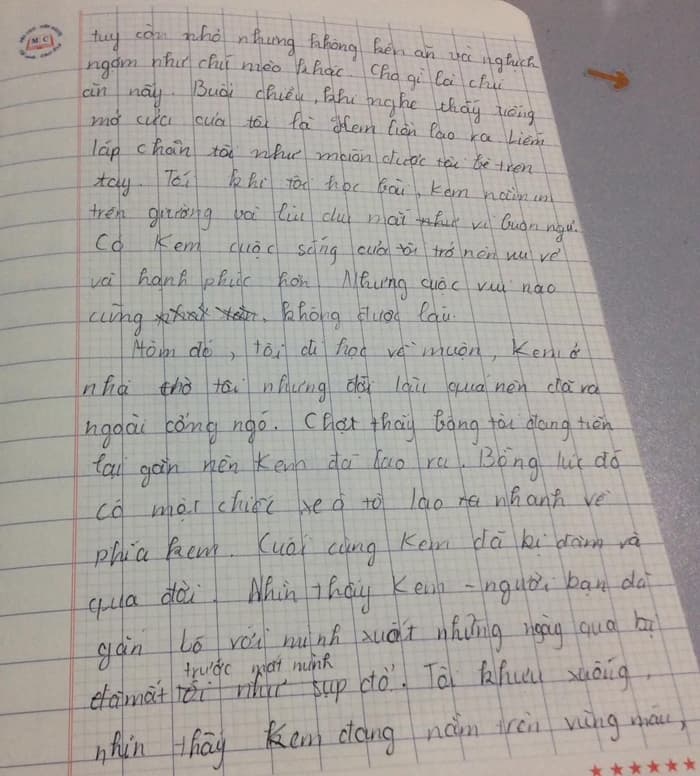 M/C
tuy còn nhỏ nhưng không kén ăn và nghịch
ngợm như chú mèo khác. Cho gì là chú
ăn nấy. Buổi chiều, khi nghe thấy tiếng
mở cửa của tôi là Kem liền lao ra liếm
láp chân tôi như muốn được tôi bế trên
tay. Tối khi tôi học bài, Kem nằm im
trên giường và liu diu mắt vì buồn ngủ.
Có Kem cuộc sống của tôi trở nên vui vẻ
và hạnh phúc hơn. Nhưng cuộc vui nào
cũng không được lâu.
Hôm đó, tôi đi học về muộn, Kem ở
nhà chờ tôi nhưng đợi lâu quá nên đã ra
ngoài cổng ngó. Chợt thấy bóng tôi đang tiến
lại gần nên Kem đã lao ra. Bỗng lúc đó
có một chiếc xe ô tô lao ra nhanh về
phía kem. Cuối cùng Kem đã bị đâm và
qua đời. Nhìn thấy Kem - người bạn đã
gắn bó với mình xuốt những ngày qua bị
trước mặt mình
đâm mất tôi như sụp đổ. Tôi khuỵu xuống,
nhìn thấy Kem đang nằm trên vũng máu,